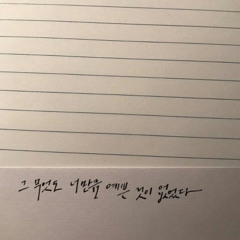 그 무엇도 너만큼 예쁜 것이 없었다